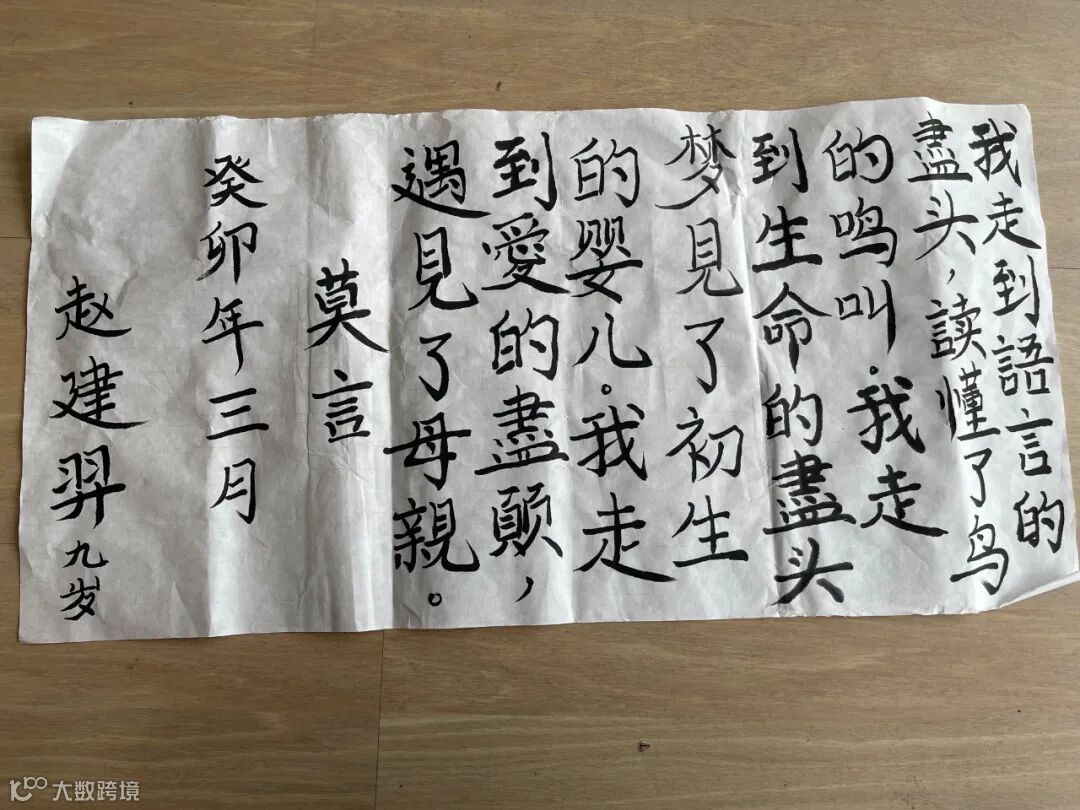 我走到語言的
盡头，读懂了鸟
的鸣叫.我走
到生命的盡头
梦見了初生
的婴儿。我走
到愛的盡頭，
遇見了母親。
莫言
癸卯年三月
赵建羿九岁
大数跨境